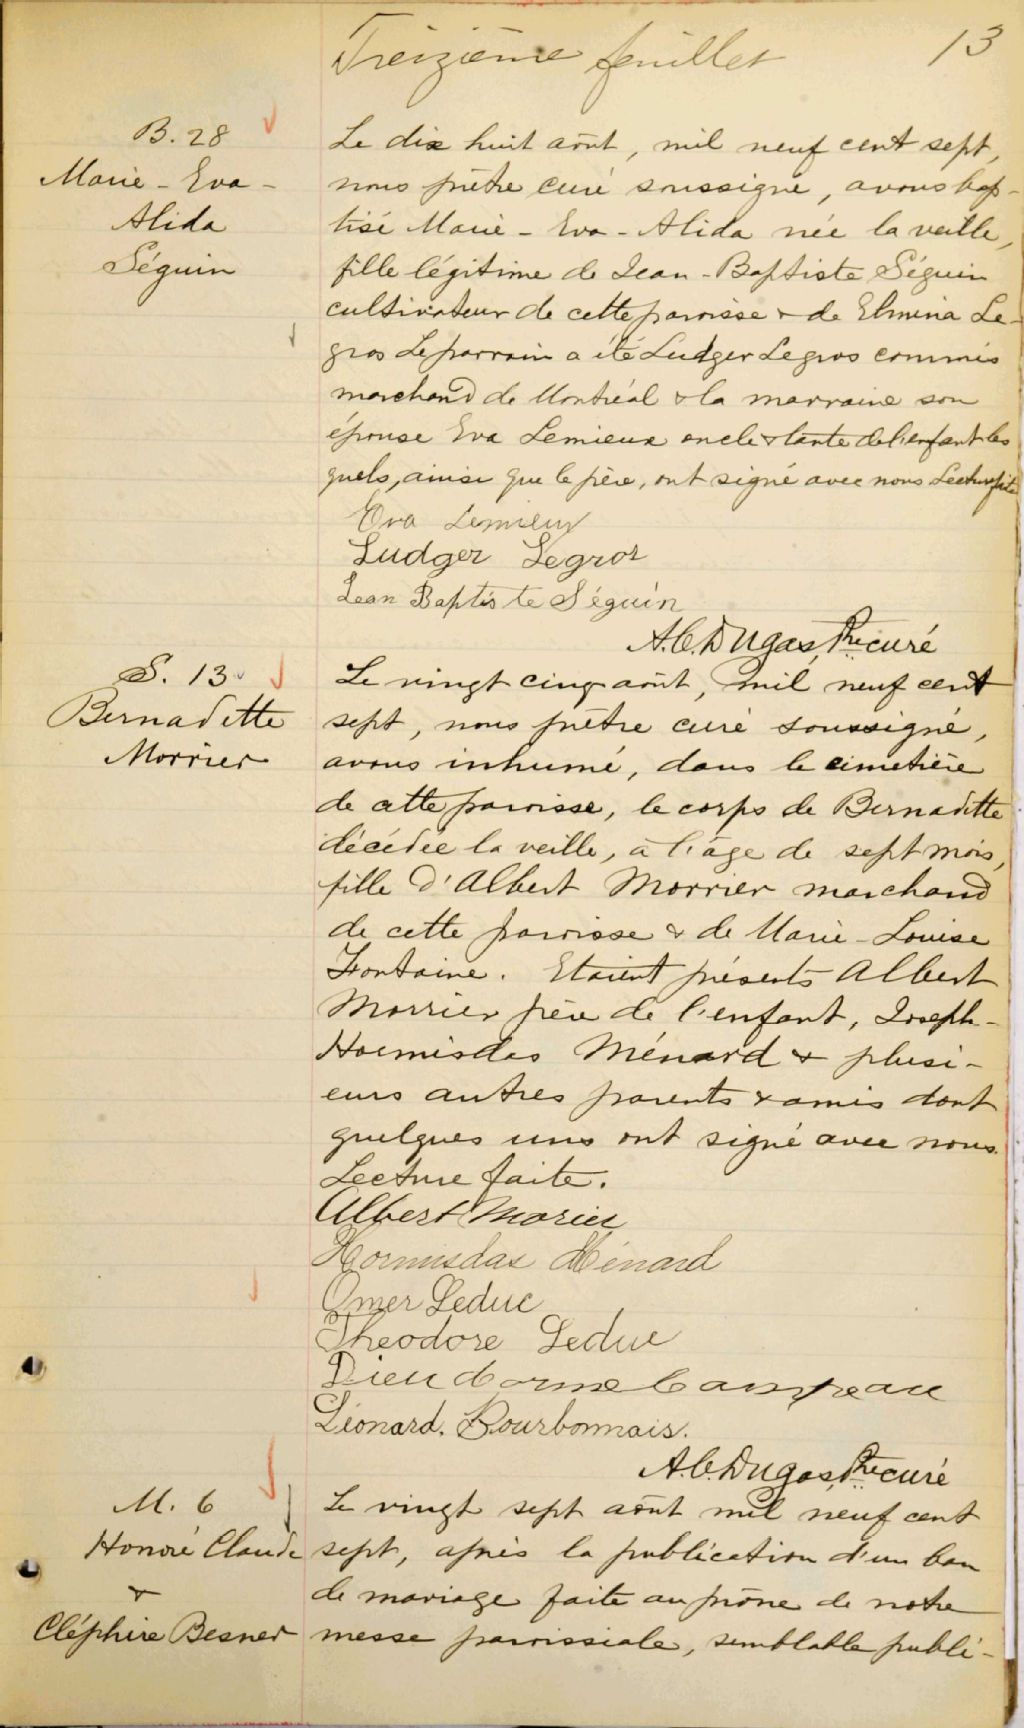 Treizième feuillet 13
B. 28
Marie - Eva -
Alida
Séguin
Le dix huit août, mil neuf cent sept,
nous prêtre curé soussigné, avons bap-
tisé Marie - Eva - Alida née la veille,
fille légitime de Jean - Baptiste Séguin
cultivateur de cette paroisse & de Elmina Le-
gros Le parrain a été Ludger Legros commis
marchand de Montréal & la marraine son
épouse Eva Lemieux oncle & tante de l'enfant les
quels, ainsi que le père, ont signé avec nous Lecture faite
Eva Lemieux
Ludger Legros
Jean Baptiste Séguin
A.C. Dugas, Ptre curé
S. 13
Bernaditte
Morrier
Le vingt cinq août, mil neuf cent
sept, nous prêtre curé soussigné,
avons inhumé, dans le cimetière
de cette paroisse, le corps de Bernaditte
décédée la veille, à l'âge de sept mois,
fille d'Albert Morrier marchand
de cette paroisse & de Marie - Louise
Frontaine. Etaient présents Albert
Morrier père de l'enfant, Joseph -
Hormisdas Ménard & plusi-
eurs autres parents & amis dont
quelques uns ont signé avec nous.
Lecture faite.
Albert Morier
Hormisdas Ménard
Omer Leduc
Theodore Leduc
Dieudonne Campeau
Léonard. Bourbonnais.
A.C. Dugas, Ptre curé
M. 6
Honoré Claude
&
Cléphire Besner
Le vingt sept août mil neuf cent
sept, après la publication d'un ban
de mariage faite au prône de notre
messe paroissiale, semblable publi-